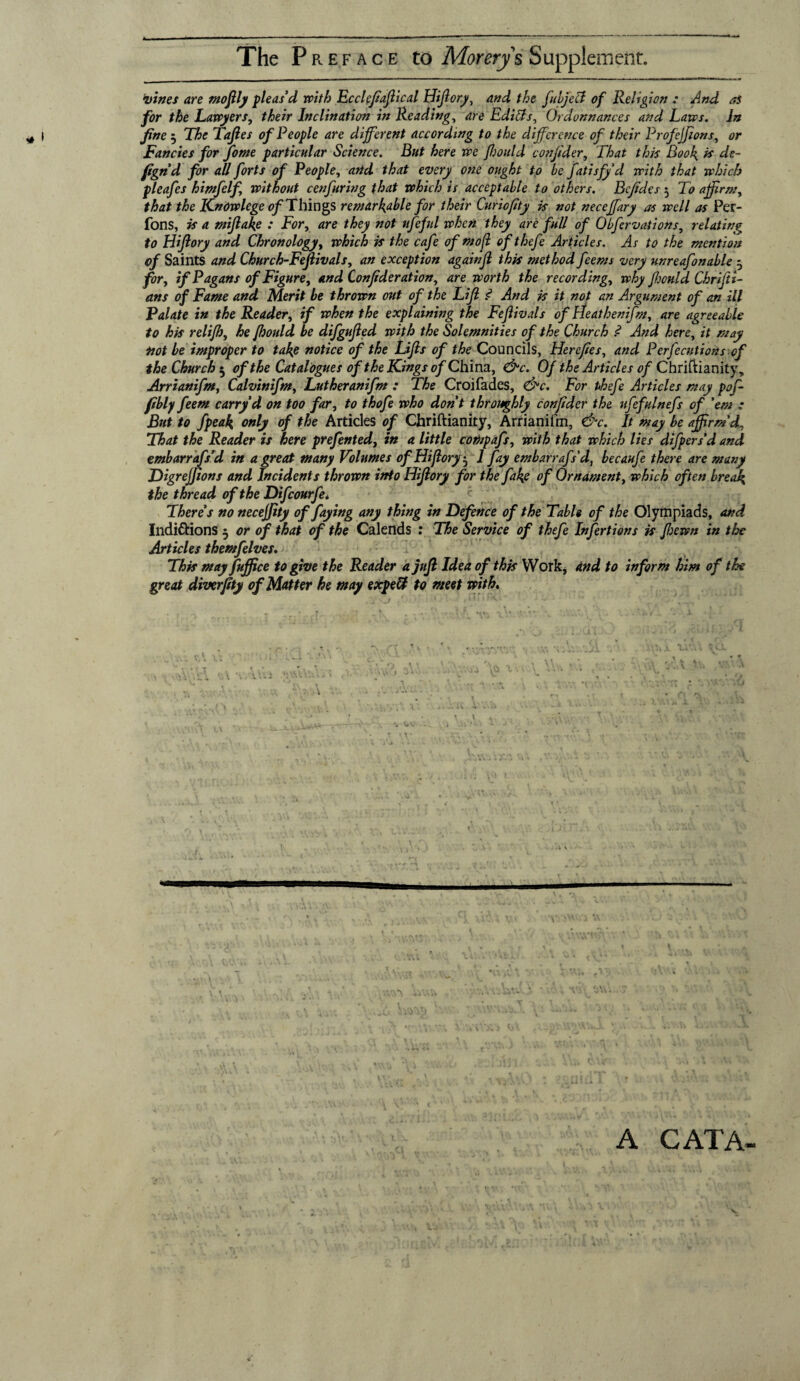 The PREFACE to Morery's Supplement.
vines are mostly pleas'd with Ecclesiastical History, and the subject of Religion : And as
for the Lawyers, their Inclination in Reading, are Edicts, Ordonnances and Laws. In
fine ; The Tastes of People are different according to the difference of their Professions, or
Fancies for some particular Science. But here we should consider, That this Book is de-
sign'd for all sorts of People, and that every one ought to be satisfy'd with that which
pleases himself, without censuring that which is acceptable to others. Besides ; To affirm,
that the Knowlege of Things remarkable for their Curiosity is not necessary as well as Per-
sons, is a mistake : For, are they not useful when they are full of Observations, relating
to History and Chronology, which is the case of most of these Articles. As to the mention
of Saints and Church-Festivals, an exception against this method seems very unreasonable ;
for, if Pagans of Figure, and Consideration, are worth the recording, why should Christi-
ans of Fame and Merit be thrown out of the List ? And is it not an Argument of an ill
Palate in the Reader, if when the explaining the Festivals of Heathenism, are agreeable
to his relish, he should be disgusted with the Solemnities of the Church ? And here, it may
not be improper to take notice of the Lists of the Councils, Heresies, and Persecutions of
the Church ; of the Catalogues of the Kings of China, &c. Of the Articles of Christianity,
Arrianism, Calvinism, Lutheranism : The Croisades, &c. For these Articles may pos-
sibly seem carry'd on too far, to those who don't throughly consider the usefulness of 'em :
But to speak only of the Articles of Christianity, Arrianism, &c. It may be affirm'd,
That the Reader is here presented, in a little compass, with that which lies dispers'd and
embarrass'd in a great many Volumes of History ; I say embarrass'd, because there are many
Digressions and Incidents thrown into History for the sake of Ornament, which often break
the thread of the Discourse.
There's no necessity of saying any thing in Defence of the Table of the Olympiads, and
Indictions ; or of that of the Calends : The Service of these Insertions is shewn in the
Articles themselves.
This may suffice to give the Reader a just Idea of this Work, and to inform him of the
great diversity of Matter he may expect to meet with.
A CATA-